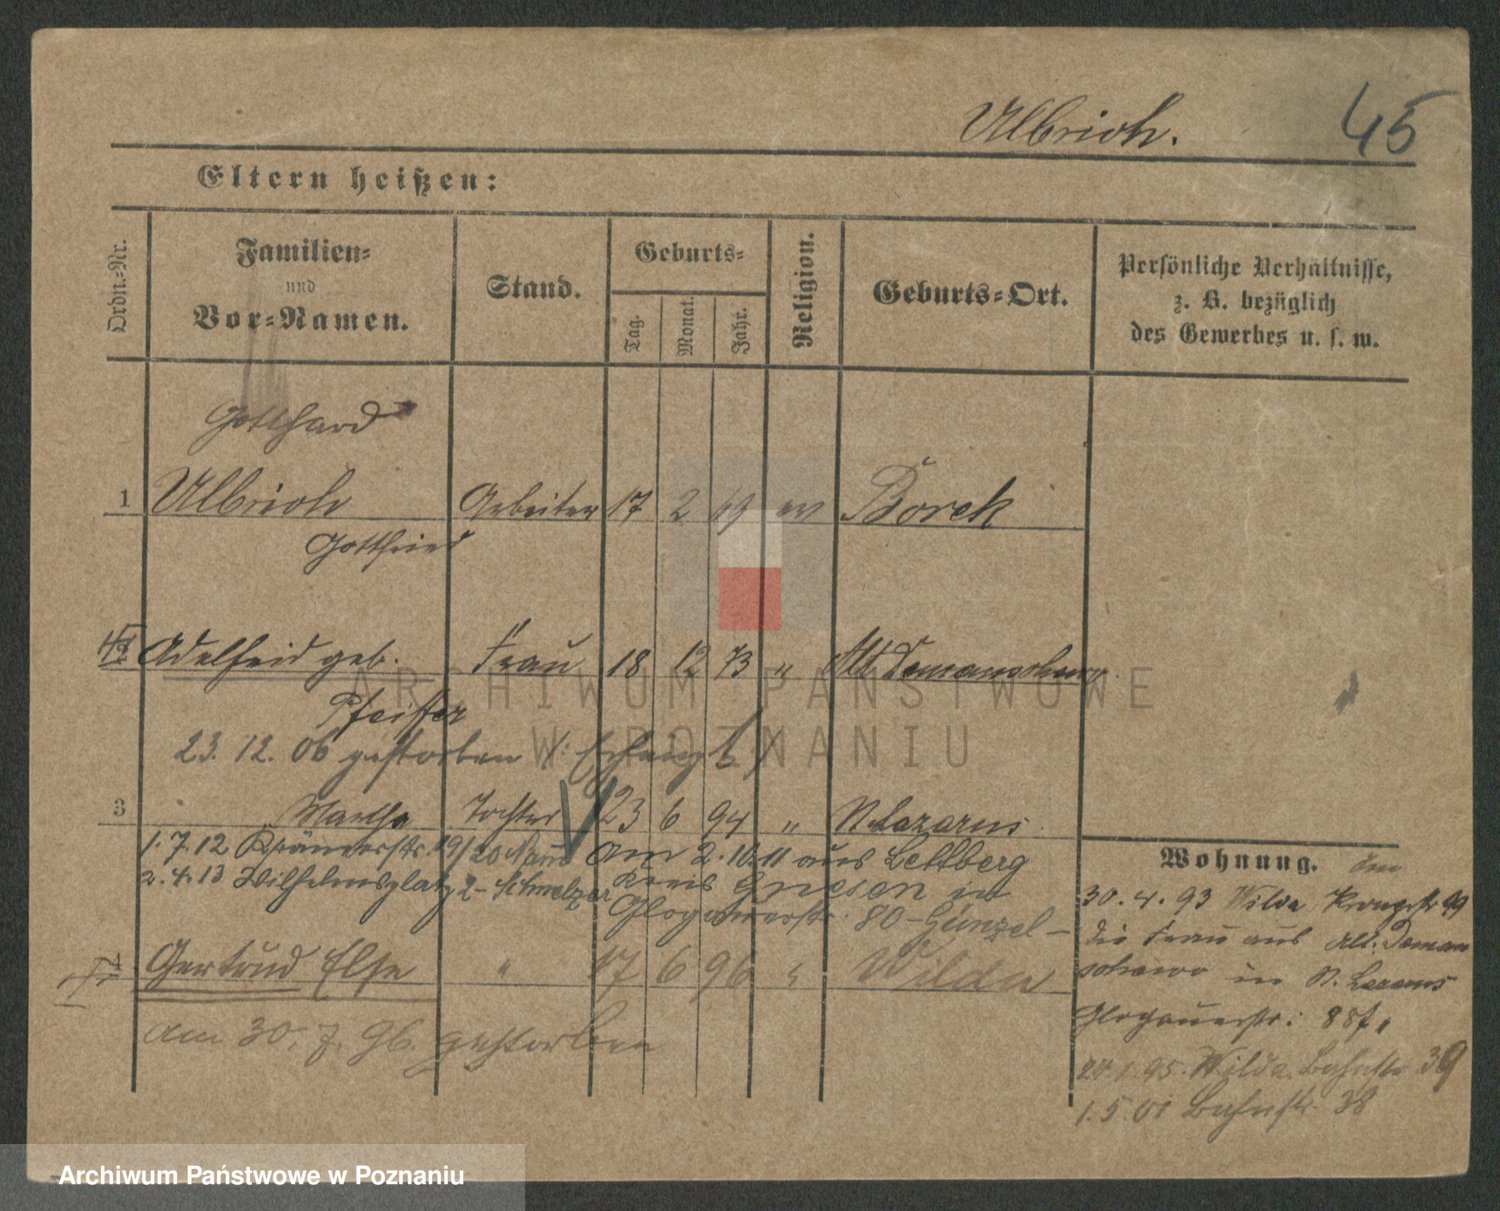 Ulbrich. 45
Eltern heißen:
Ordn.-Nr. Familien- und Vor-Namen. Stand. Geburts- Tag. Monat. Jahr. Religion. Geburts-Ort. Persönliche Verhältnisse, z. B. bezüglich des Gewerbes u. s. w.
Gotthard
1 Ulbrich Arbeiter 17 2 69 ev Borek
Gottfried
2 Adelheid geb. Frau 18 12 73 "
Pfeiffer
23. 12. 06 gestorben
3 Martha Tochter 23 6 94 " St. Lazarus
1. 7. 12 19/20 am 2. 10. 11 aus Lettberg
2. 4. 13 Wilhelmsplatz 2 - Schmelzer Kreis Gnesen in
Glogauerstr. 80 - Günzel -
4 Gertrud Else " 17 6 96 " Wilda
am 30. 7. 96. gestorben
Wohnung.
30. 4. 93 Wilda
die Frau aus Alt. Doman
in St. Lazarus
Glogauerstr:
24. 1. 95. Wilda. Bahnstr 39
1. 5. 01 Bahnstr. 38
ARCHIWUM PAŃSTWOWE
W POZNANIU
Archiwum Państwowe w Poznaniu